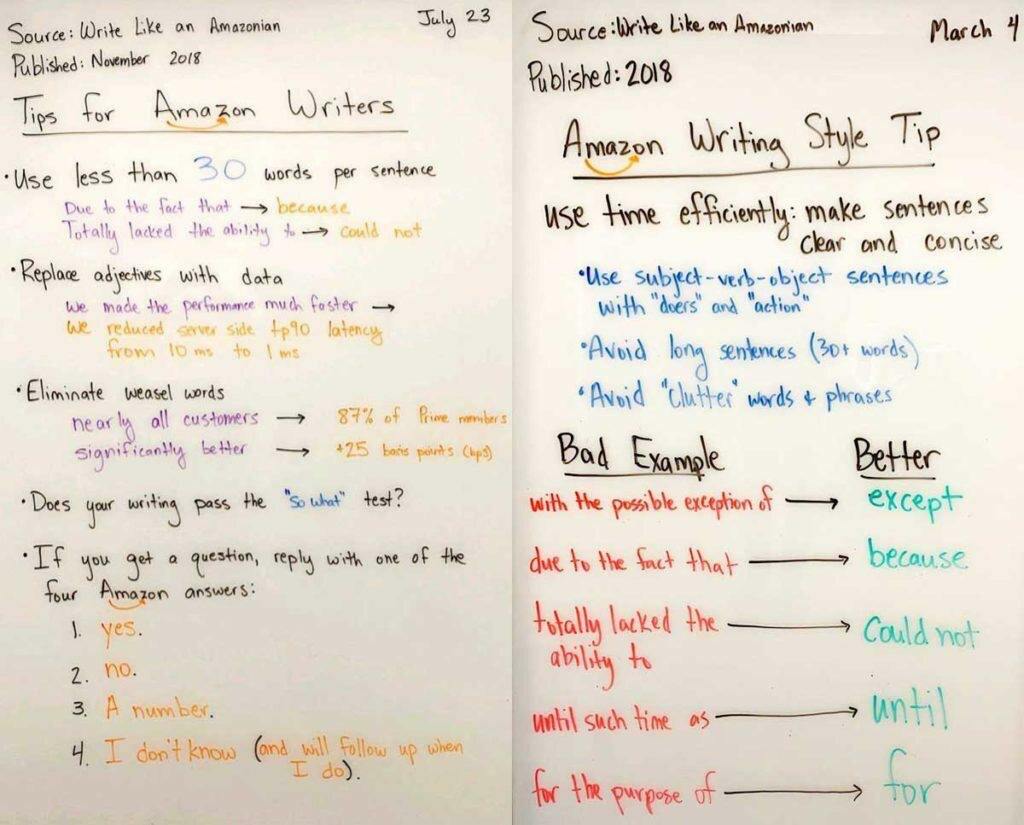 Source: Write Like an Amazonian
July 23
Published: November 2018
Tips for Amazon Writers
• Use less than 30 words per sentence
Due to the fact that → because
Totally lacked the ability to → could not
• Replace adjectives with data
We made the performance much faster →
We reduced server side tp90 latency
from 10 ms to 1 ms
• Eliminate weasel words
nearly all customers → 87% of Prime members
significantly better → +25 basis points (bps)
• Does your writing pass the "So what" test?
• If you get a question, reply with one of the
four Amazon answers:
1. yes.
2. no.
3. A number.
4. I don't know (and will follow up when
I do).
Source: Write Like an Amazonian
March 4
Published: 2018
Amazon Writing Style Tip
use time efficiently: make sentences
clear and concise
• Use subject-verb-object sentences
with "doers" and "action"
• Avoid long sentences (30+ words)
• Avoid "clutter" words + phrases
Bad Example Better
with the possible exception of → except
due to the fact that → because
totally lacked the → Could not
ability to
until such time as → until
for the purpose of → for